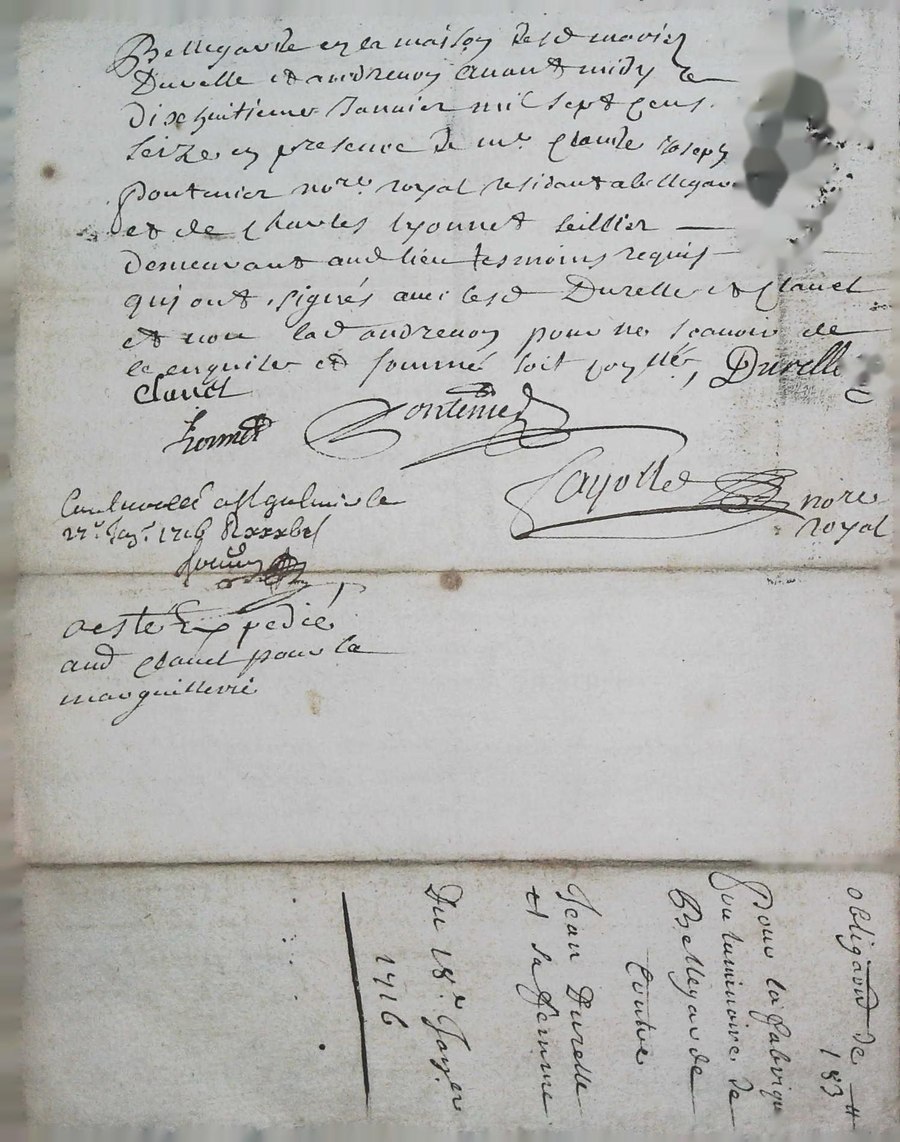 Bellegarde en la maison desd mariez
Durelle et andrenon avant midy le
dixhuitieme Januier mil sept cens
seize en presence de mr Claude Joseph
pontenier nore royal residant a bellegar
et de Charles Lyonnet sellier
demeurant aud lieu tesmoins requis
qui ont signés auec lesd Durelle et Clauet
et non lad andrenon pour ne scauoir de
ce enquise et sommé soit
Durelle
Clauet
Pontenier
Lionnet
Jayolle nore
royal
le
27e Jar 1716
a esté Expedié
aud Clauet pour la
marguillerie
obligaon de 183 tt
Pour la fabrique
du luminaire de
Bellegarde
Contre
Jean Durelle
et sa femme
Du 18e Janer
1716